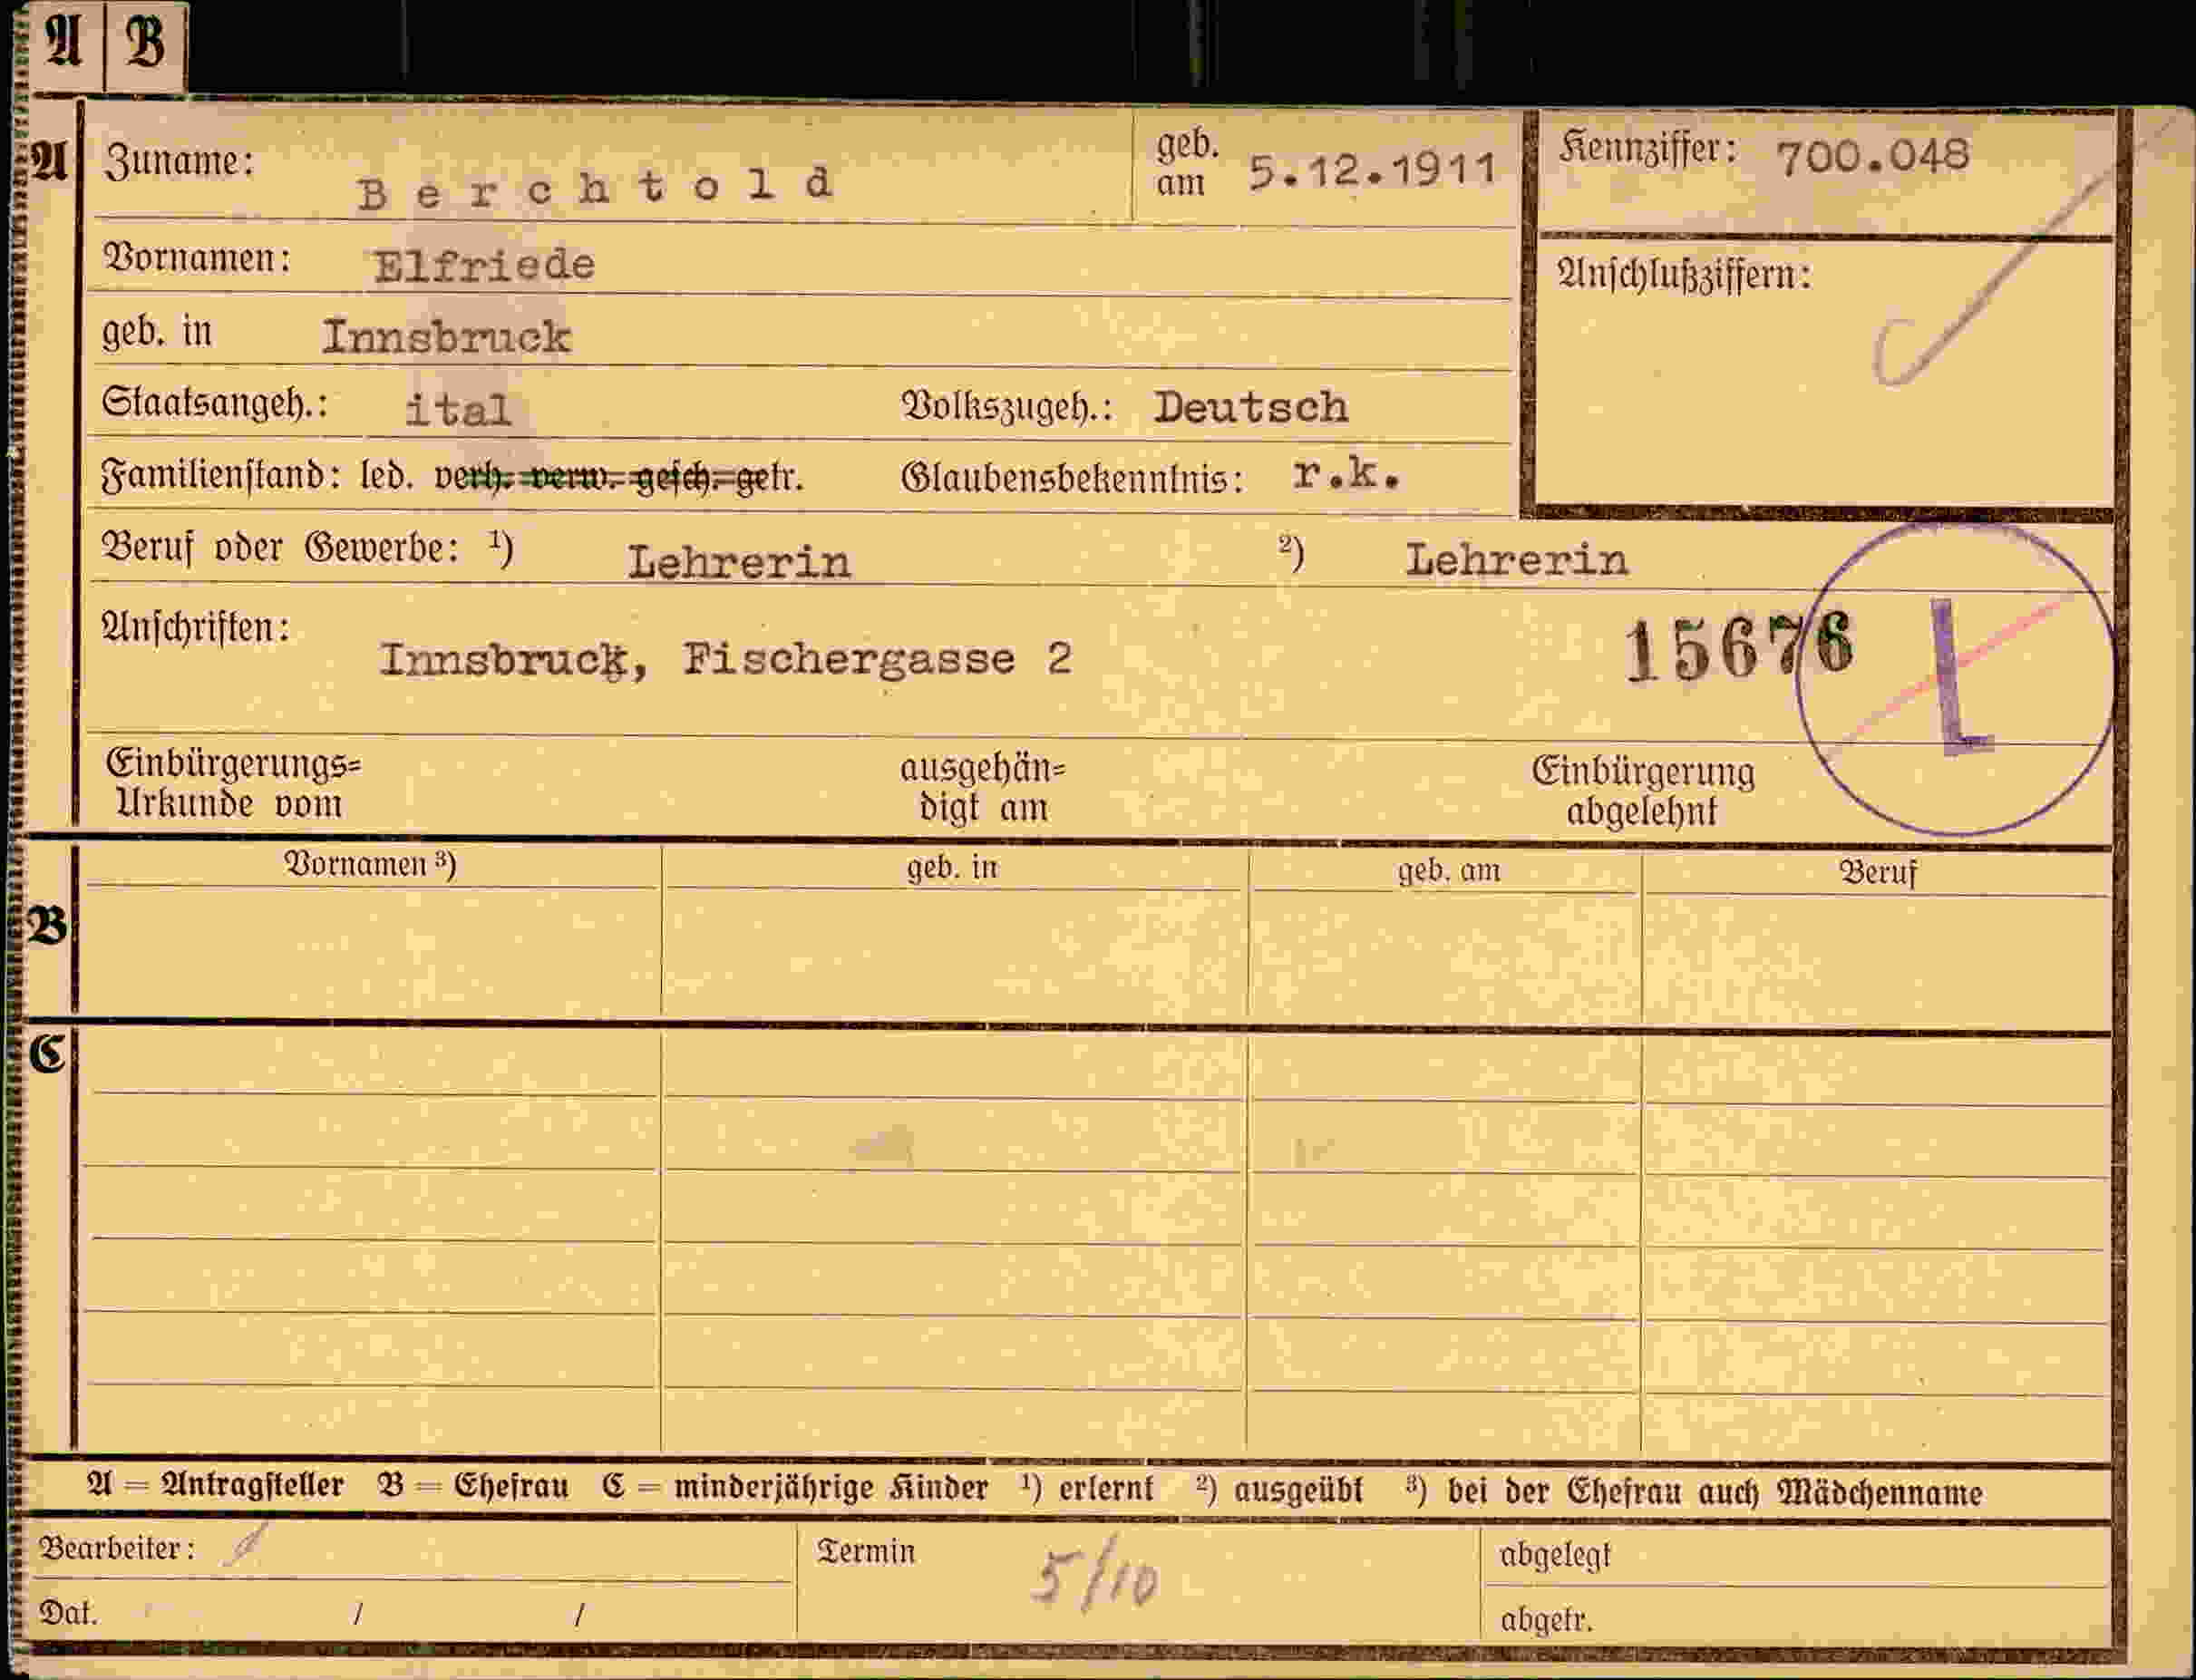 A B
A Zuname: Berchtold geb. am 5.12.1911 Kennziffer: 700.048
Vornamen: Elfriede Anschlußziffern:
geb. in Innsbruck
Staatsangeh.: ital Volkszugeh.: Deutsch
Familienstand: led. verh. verw. gesch. getr. Glaubensbekenntnis: r.k.
Beruf oder Gewerbe: ¹) Lehrerin ²) Lehrerin
Anschriften: Innsbruck, Fischergasse 2 15676 L
Einbürgerungs= ausgehän= Einbürgerung
Urkunde vom digt am abgelehnt
Vornamen ³) geb. in geb. am Beruf
B
C
A = Antragsteller B = Ehefrau C = minderjährige Kinder ¹) erlernt ²) ausgeübt ³) bei der Ehefrau auch Mädchenname
Bearbeiter: Termin 5/10 abgelegt
Dat. / / abgetr.